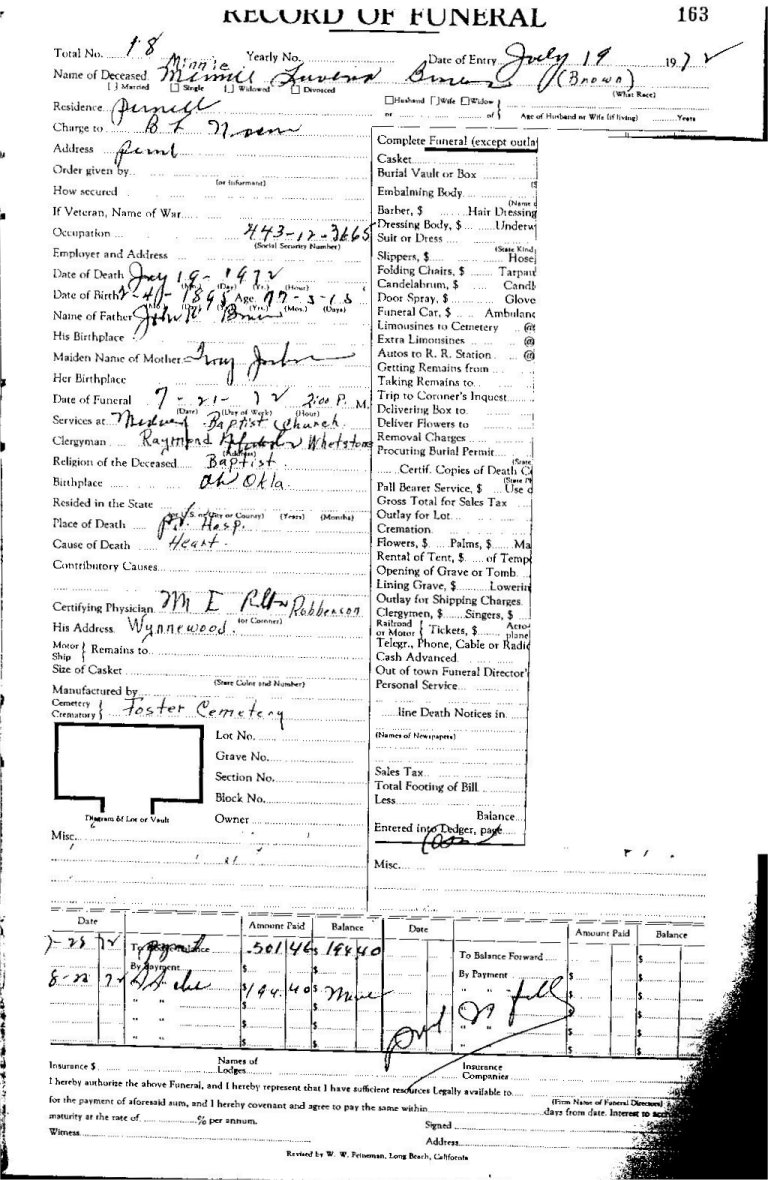 RECORD OF FUNERAL 163
Total No. 18 Yearly No. Date of Entry July 19 1972
Minnie
Name of Deceased Minnie (Brown)
[ ] Married [ ] Single [ ] Widowed [ ] Divorced (What Race)
Residence Pernell [ ] Husband [ ] Wife [ ] Widow
or of Age of Husband or Wife (if living) Years
Charge to B L
Address
Order given by
(or informant)
How secured
If Veteran, Name of War
Occupation 443-12-3665
(Social Security Number)
Employer and Address
Date of Death July 19 - 1972
(Mo.) (Day) (Yr.) (Hour)
Date of Birth 1895 Age 77-5-15
(Yrs.) (Mos.) (Days)
Name of Father John
His Birthplace
Maiden Name of Mother
Her Birthplace
Date of Funeral 7-21-72 2:00 P. M.
(Date) (Day of Week) (Hour)
Services at Baptist Church
Clergyman Raymond Whetstone
(Address)
Religion of the Deceased Baptist
Birthplace Okla.
Resided in the State
(or U.S. or City or County) (Years) (Months)
Place of Death Hosp.
Cause of Death Heart.
Contributory Causes
Certifying Physician M E Robberson
(or Coroner)
His Address Wynnewood.
Motor
Ship } Remains to
Size of Casket
(State Color and Number)
Manufactured by
Cemetery
Crematory } Foster Cemetery
Lot No.
Grave No.
Section No.
Block No.
Diagram of Lot or Vault Owner
Misc.
Complete Funeral (except outla
Casket
Burial Vault or Box
Embalming Body
(Name o
Barber, $ Hair Dressing
Dressing Body, $ Underw
Suit or Dress
(State Kind
Slippers, $ Hose
Folding Chairs, $ Tarpau
Candelabrum, $ Candl
Door Spray, $ Glove
Funeral Car, $ Ambulanc
Limousines to Cemetery @
Extra Limousines @
Autos to R. R. Station @
Getting Remains from
Taking Remains to
Trip to Coroner's Inquest
Delivering Box to
Deliver Flowers to
Removal Charges
Procuring Burial Permit
(State
Certif. Copies of Death C
(State
Pall Bearer Service, $ Use o
Gross Total for Sales Tax
Outlay for Lot
Cremation
Flowers, $ Palms, $ Ma
Rental of Tent, $ of Temp
Opening of Grave or Tomb
Lining Grave, $ Lowerin
Outlay for Shipping Charges
Clergymen, $ Singers, $
Railroad
or Motor { Tickets, $ Aero-
plane
Telegr., Phone, Cable or Radi
Cash Advanced
Out of town Funeral Director'
Personal Service
line Death Notices in
(Names of Newspapers)
Sales Tax
Total Footing of Bill
Less
Balance
Entered into Ledger, page
Misc.
Date Amount Paid Balance Date Amount Paid Balance
7-25 72 501 46 $ 194 40 To Balance Forward $
By Payment
8-22 72 $194.40 $ By Payment $
" " $ $ " " $ $
Pd in full
" " $ $ " " $ $
" " $ $ " " $ $
Insurance $ Names of
Lodges Insurance
Companies
I hereby authorize the above Funeral, and I hereby represent that I have sufficient resources Legally available to
(Firm Name of Funeral Directors)
for the payment of aforesaid sum, and I hereby covenant and agree to pay the same within days from date. Interest to
maturity at the rate of % per annum. Signed
Witness Address
Revised by W. W. Feineman, Long Beach, California